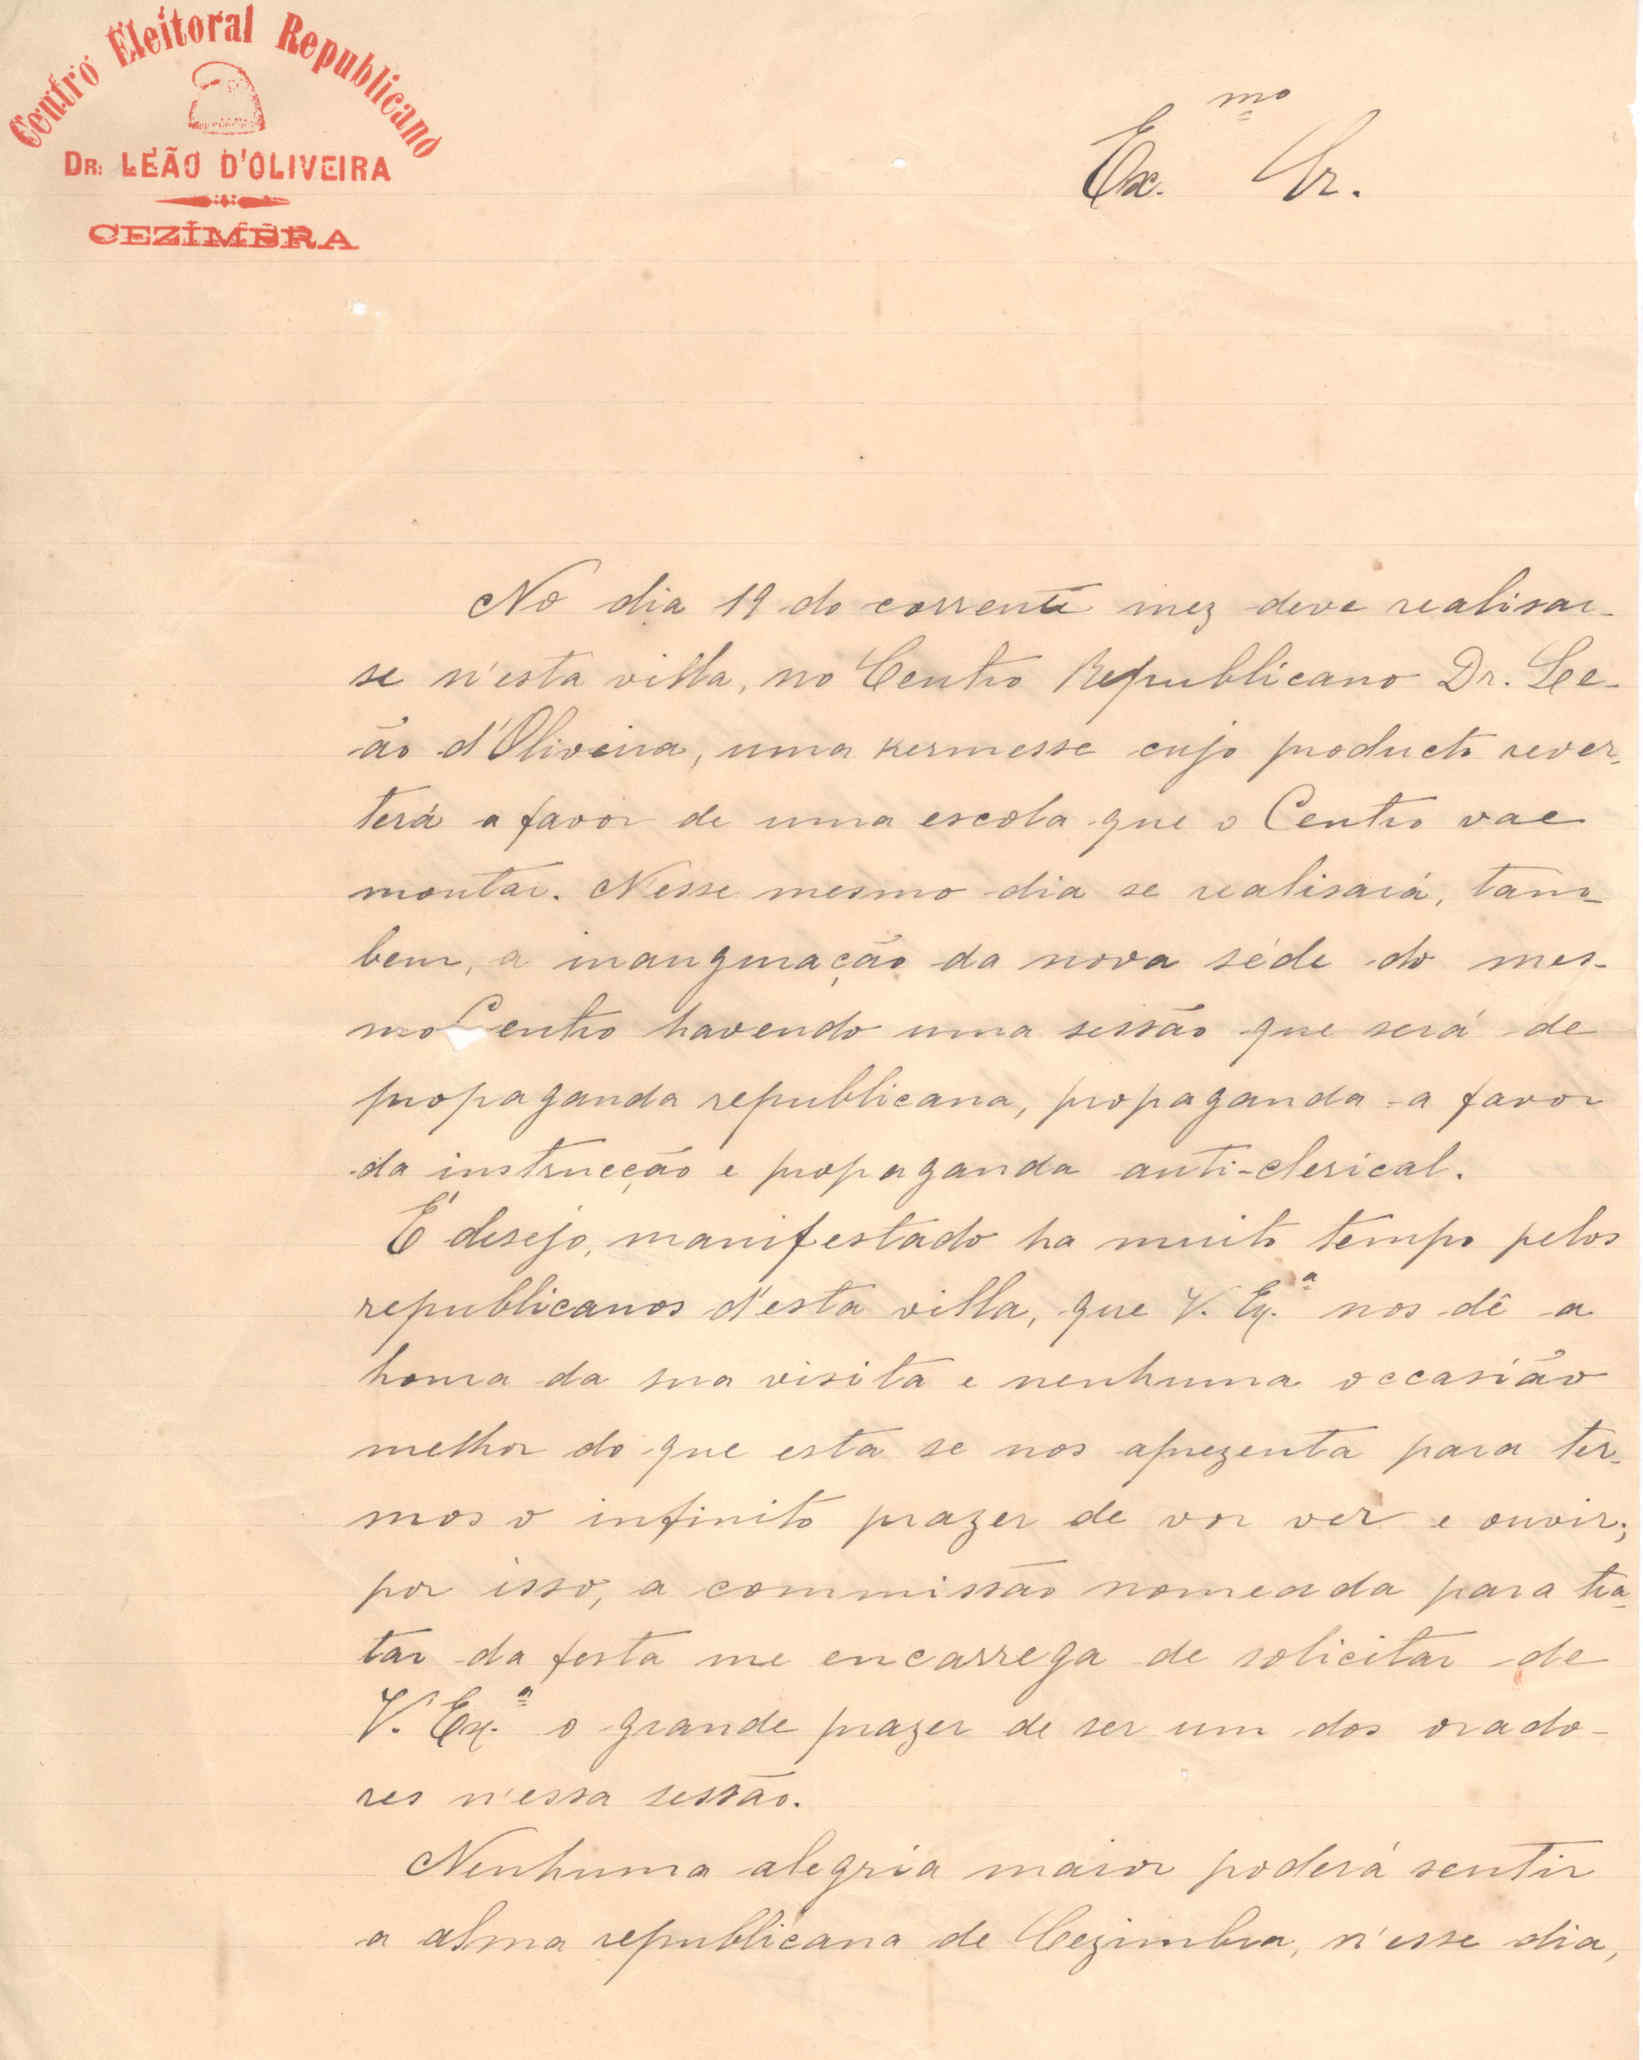 Centro Eleitoral Republicano
DR. LEÃO D'OLIVEIRA
CEZIMBRA
Ex.mo Sr.
No dia 19 do corrente mez deve realisar-
se n'esta villa, no Centro Republicano Dr. Le-
ão d'Oliveira, uma kermesse cujo producto rever-
terá a favor de uma escola que o Centro vae
montar. Nesse mesmo dia se realisará, tam-
bem, a inauguração da nova séde do mes-
mo Centro havendo uma sessão que será de
propaganda republicana, propaganda a favor
da instrucção e propaganda anti-clerical.
É desejo, manifestado ha muito tempo pelos
republicanos d'esta villa, que V. Ex.a nos dê a
honra da sua visita e nenhuma occasião
melhor do que esta se nos aprezenta para ter-
mos o infinito prazer de vos ver e ouvir;
por isso, a commissão nomeada para tra-
tar da festa me encarrega de solicitar de
V. Ex.a o grande prazer de ser um dos orado-
res n'essa sessão.
Nenhuma alegria maior poderá sentir
a alma republicana de Cezimbra, n'esse dia,